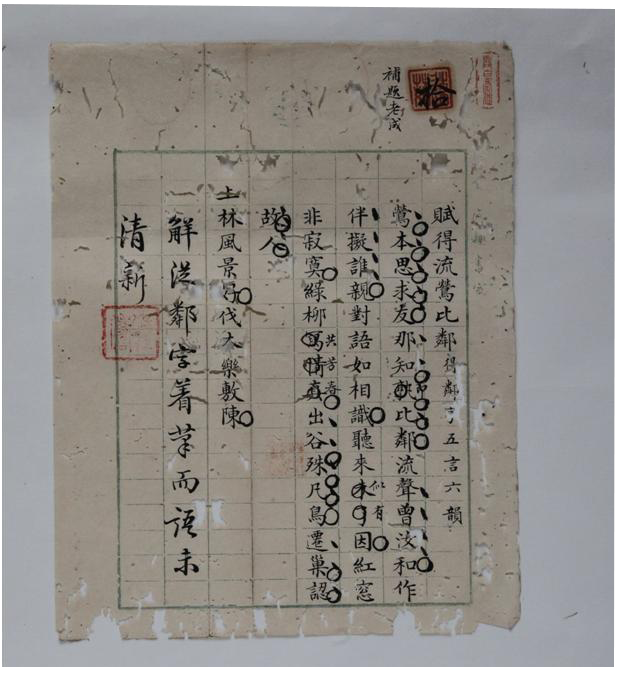 拾
補題老成
賦得流鶯比鄰得鄰字五言六韻
鶯本思求友那知比鄰流聲曾汝和作
伴擬誰親對語如相識聽來似有因紅窓
非寂寞綠柳共芳春出谷殊凡鳥遷巢認
故人
上林風景好伐木樂敷陳
解從鄰字着筆而語未
清新